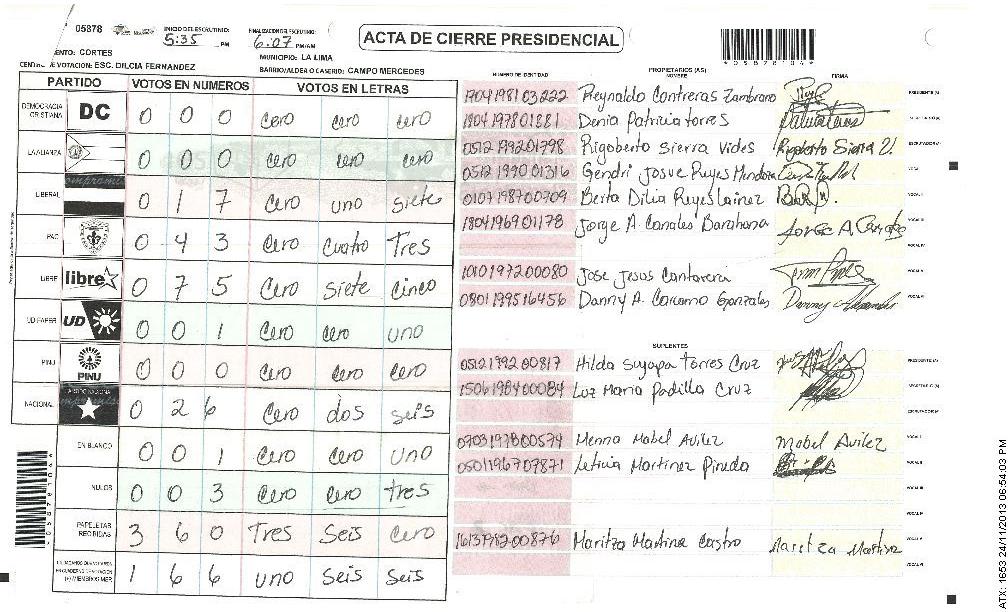 05878
INICIO DEL ESCRUTINIO: 5:35 PM
FINALIZACION DEL ESCRUTINIO: 6:07 PM/AM
ACTA DE CIERRE PRESIDENCIAL
*05878104*
CORTES
MUNICIPIO: LA LIMA
DE VOTACION: ESC. DILCIA FERNANDEZ
BARRIO/ALDEA O CASERIO: CAMPO MERCEDES
PARTIDO VOTOS EN NUMEROS VOTOS EN LETRAS
DEMOCRACIA CRISTIANA DC 0 0 0 cero cero cero
LA ALIANZA 0 0 0 cero cero cero
LIBERAL 0 1 7 cero uno siete
PAC 0 4 3 cero cuatro Tres
LIBRE libre 0 7 5 cero siete cinco
UD FAPER UD 0 0 1 cero cero uno
PINU PINU 0 0 0 cero cero cero
NACIONAL 0 2 6 cero dos seis
EN BLANCO 0 0 1 cero cero uno
NULOS 0 0 3 cero cero tres
PAPELETAS RECIBIDAS 3 6 0 Tres Seis cero
1 6 6 uno Seis Seis
PROPIETARIOS (AS)
NUMERO DE IDENTIDAD NOMBRE FIRMA
1704198103222 Reynaldo Contreras Zambrano PRESIDENTE (A)
1804197801881 Denia Patricia torres SECRETARIO (A)
0512199201798 Rigoberto sierra vides Rigoberto Sierra V. ESCRUTADOR (A)
0512199001316 Gendri Josue Reyes Mendoza VOCAL I
0107198700709 Berta Dilia Reyes Lainez VOCAL II
1804196901178 Jorge A. Canales Barahona Jorge A. Canales VOCAL III
VOCAL IV
1010197200080 Jose Jesus Cantarera VOCAL V
0801199516456 Danny A. Carcamo Gonzales Danny VOCAL VI
SUPLENTES
0512199200817 Hilda suyapa torres Cruz PRESIDENTE (A)
1506198400084 Luz Maria Padilla Cruz SECRETARIO (A)
ESCRUTADOR (A)
0703197800574 Menna Mabel Avilez Mabel Avilez VOCAL I
0501196707871 Leticia Martinez Pineda VOCAL II
VOCAL III
VOCAL IV
1613198200876 Maritza Martinez Castro Maritza Martinez VOCAL V
VOCAL VI
ATX: 1653 24/11/2013 06:54:03 PM